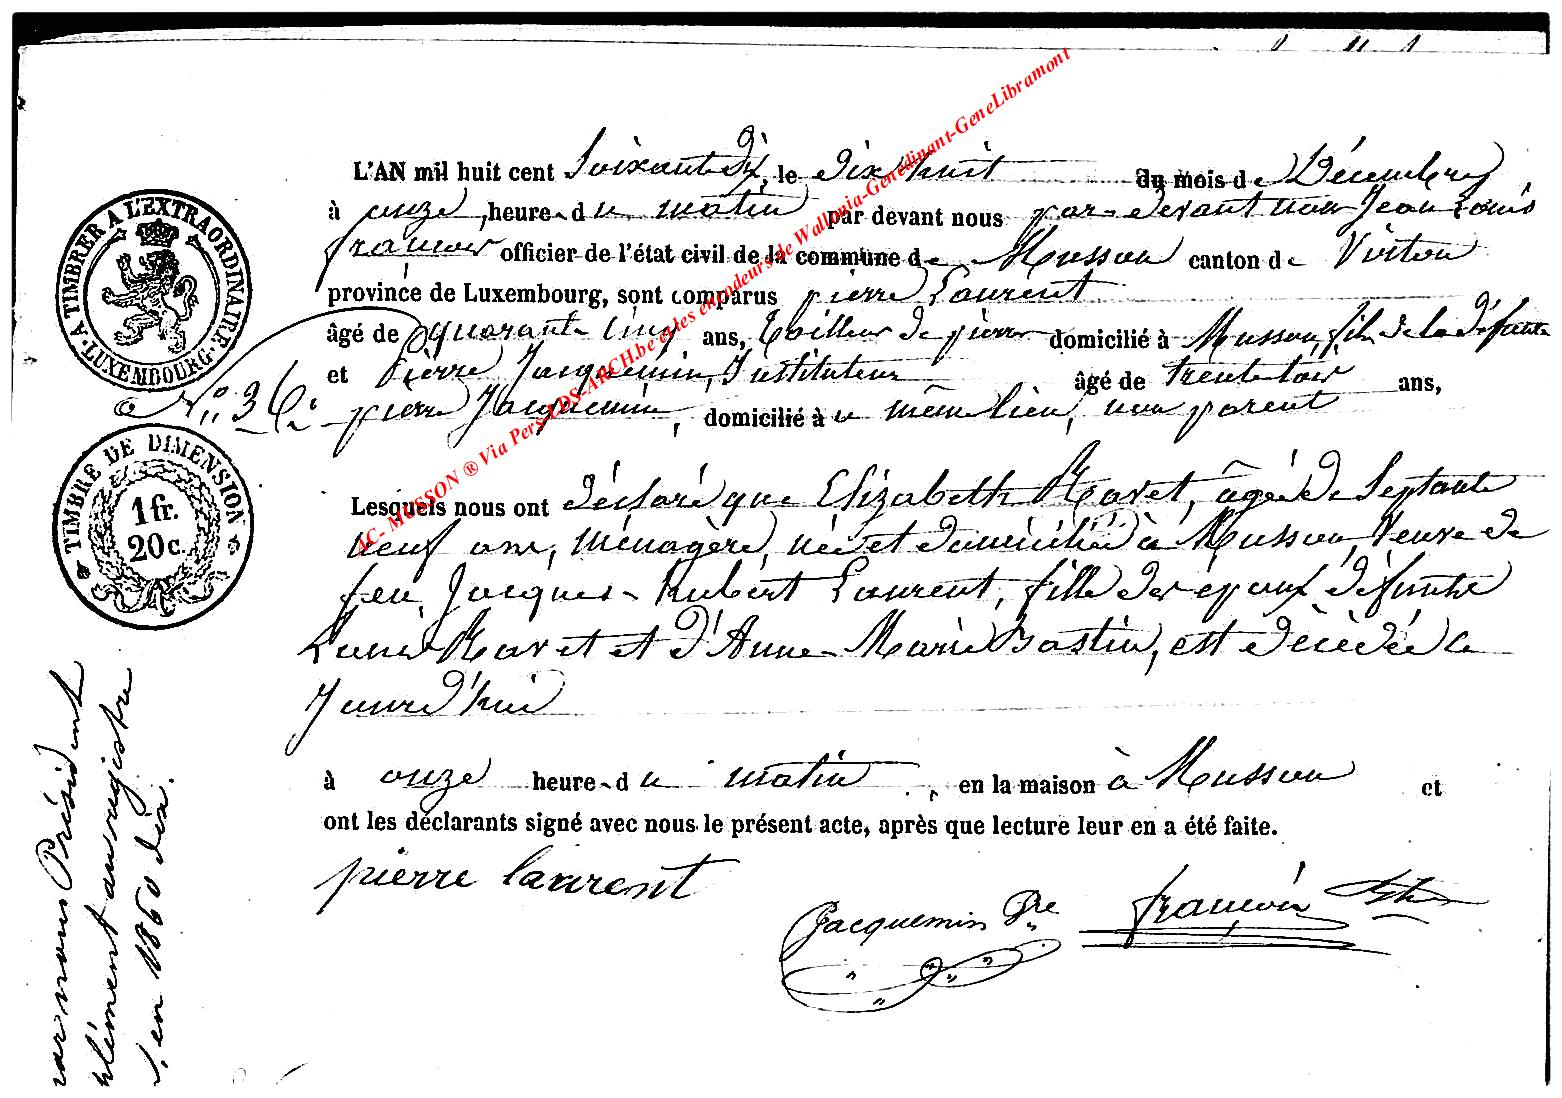 L'AN mil huit cent Soixante Dix, le Dix huit du mois de Décembre
à onze heure du matin par devant nous par devant nous Jean Louis
françois officier de l'état civil de la commune de Musson canton de Virton
province de Luxembourg, sont comparus pierre Laurent
âgé de quarante cinq ans, tailleur de pierres domicilié à Musson, fils de la défunte
et Pierre Jacquemin, Instituteur âgé de trente trois ans,
N° 36. pierre Jacquemin, domicilié à u même lieu, non parent
Lesquels nous ont déclaré que Elizabeth Ravet, âgée de Septante
neuf ans, ménagère, née et domiciliée à Musson, Veuve de
feu Jacques-Hubért Laurent, fille des époux défunts
Louis Ravet et d'Anne-Marie Bastin, est décédée ce
Jourd'hui
à onze heure du matin, en la maison à Musson et
ont les déclarants signé avec nous le présent acte, après que lecture leur en a été faite.
pierre laurent
Jacquemin Pre françois
A TIMBRER A L'EXTRAORDINAIRE
LUXEMBOURG
TIMBRE DE DIMENSION
1 fr.
20 c.
par nous Président
plément au registre
en 1860 dix.
AC- MUSSON ® Via Pers-LDS-ARCH.be et les encodeurs de Wallonia-Genedinant-GeneLibramont